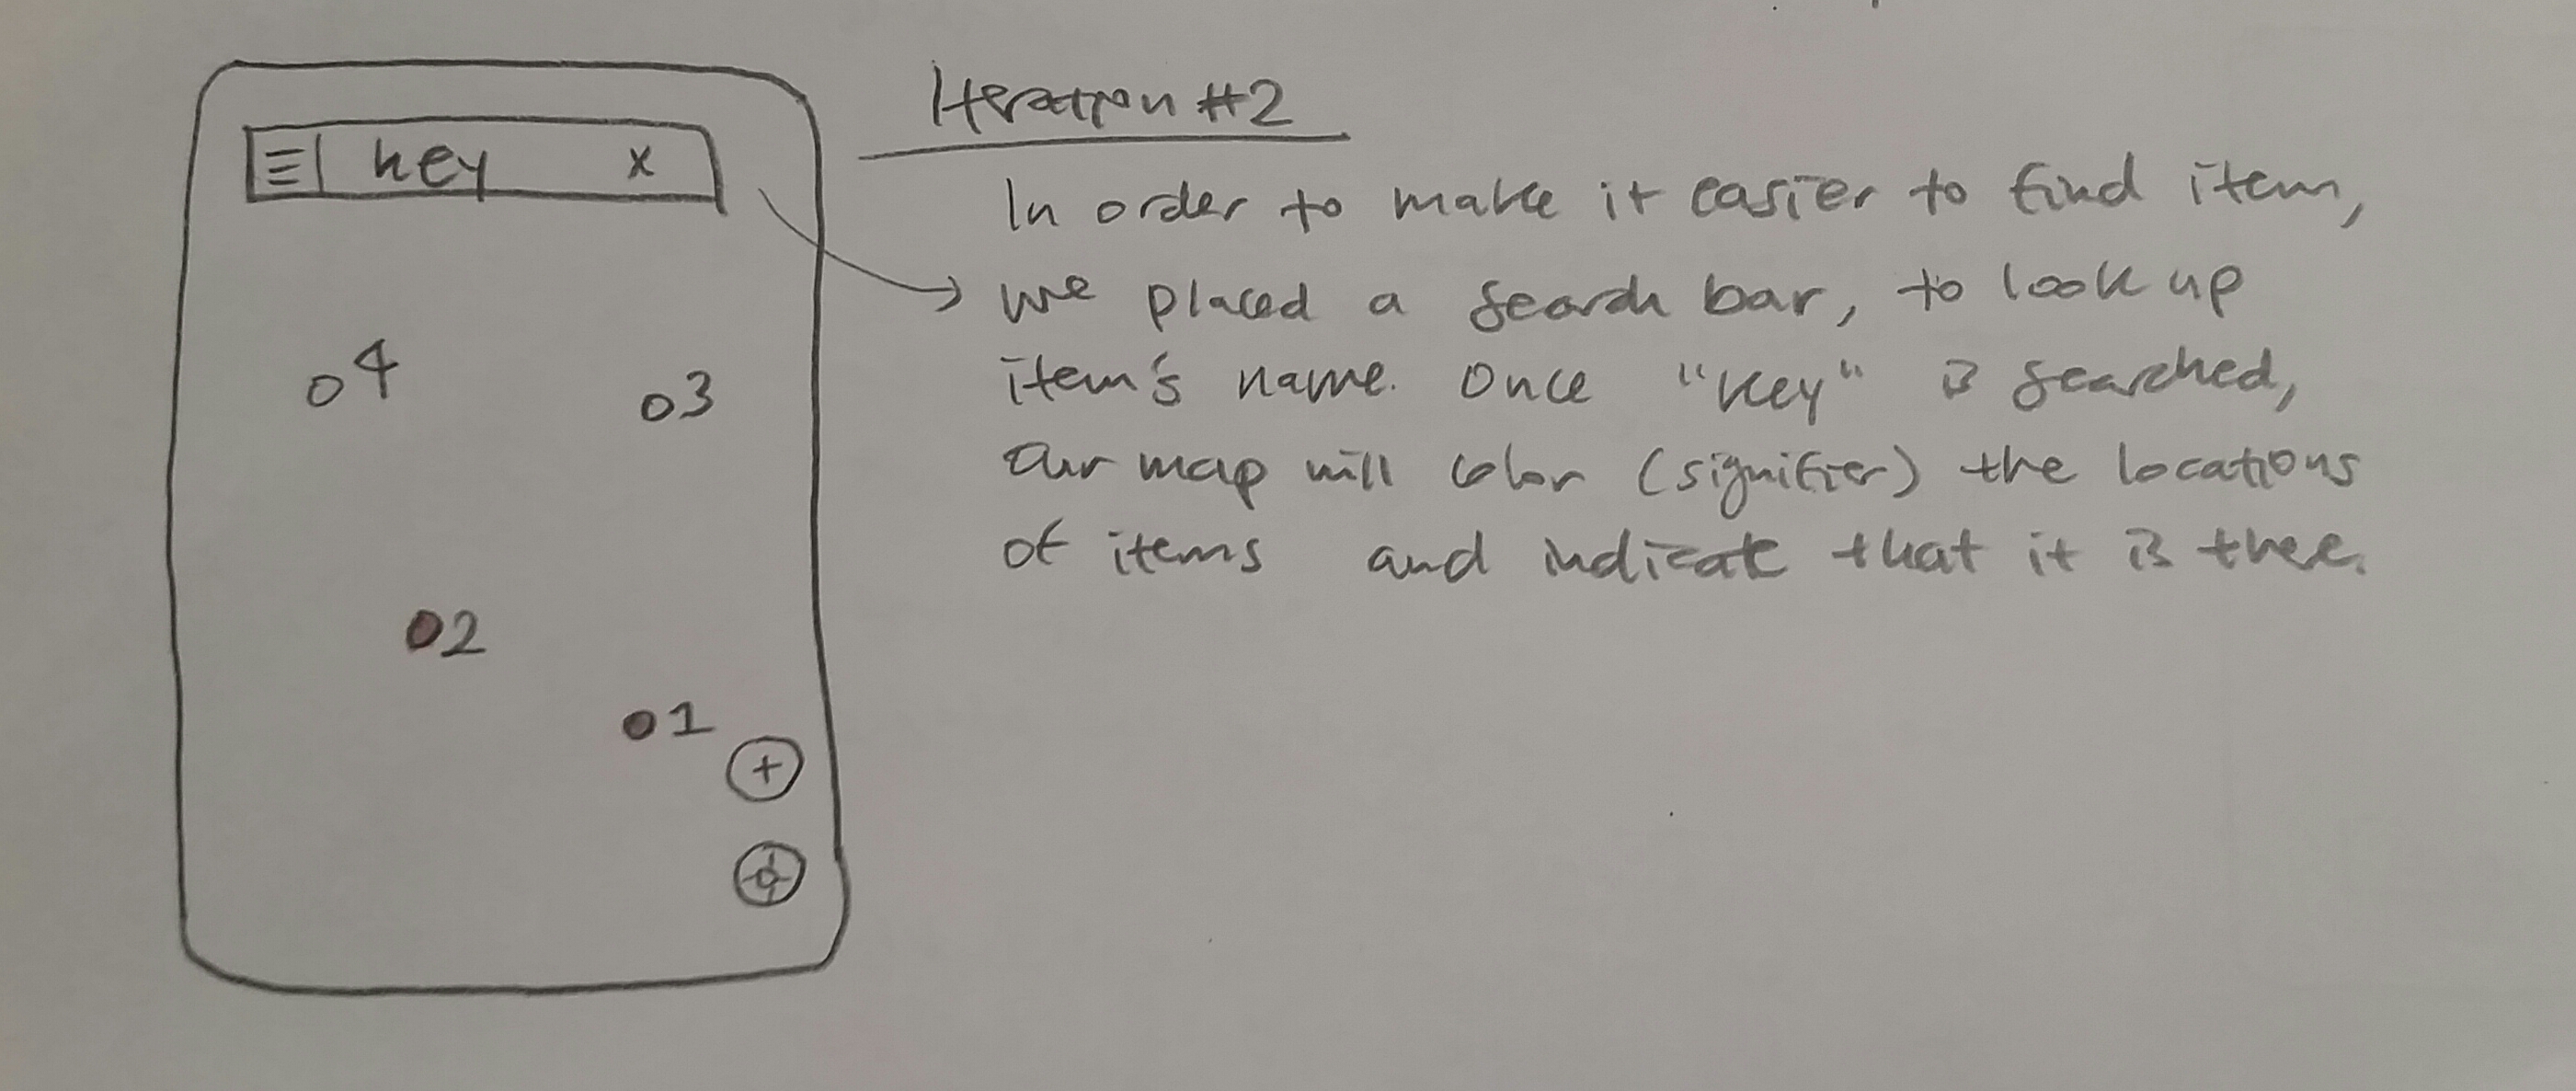 Iteration #2
key x
In order to make it easier to find item,
we placed a search bar, to look up
item's name. Once "key" is searched,
our map will color (signifier) the locations
of items and indicate that it is there.
4
3
2
1
+